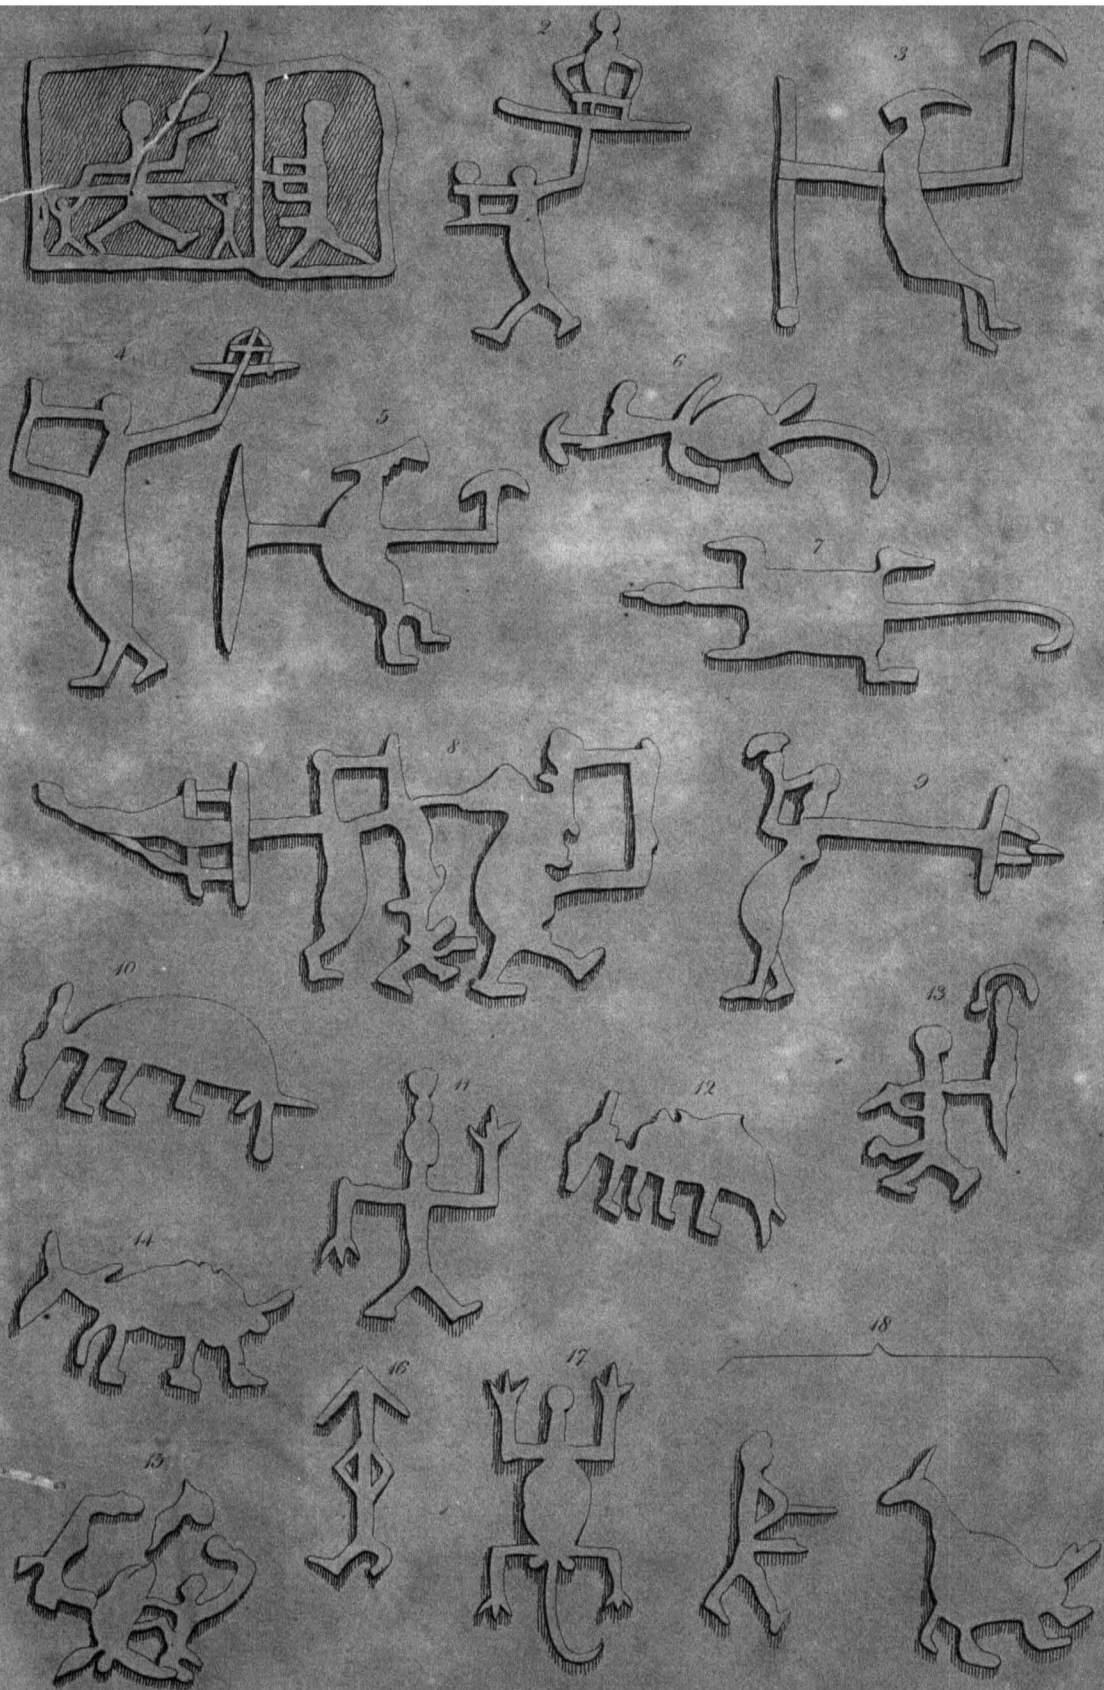 1
2
3
4
5
6
7
8
9
10
11
12
13
14
16
17
18
15